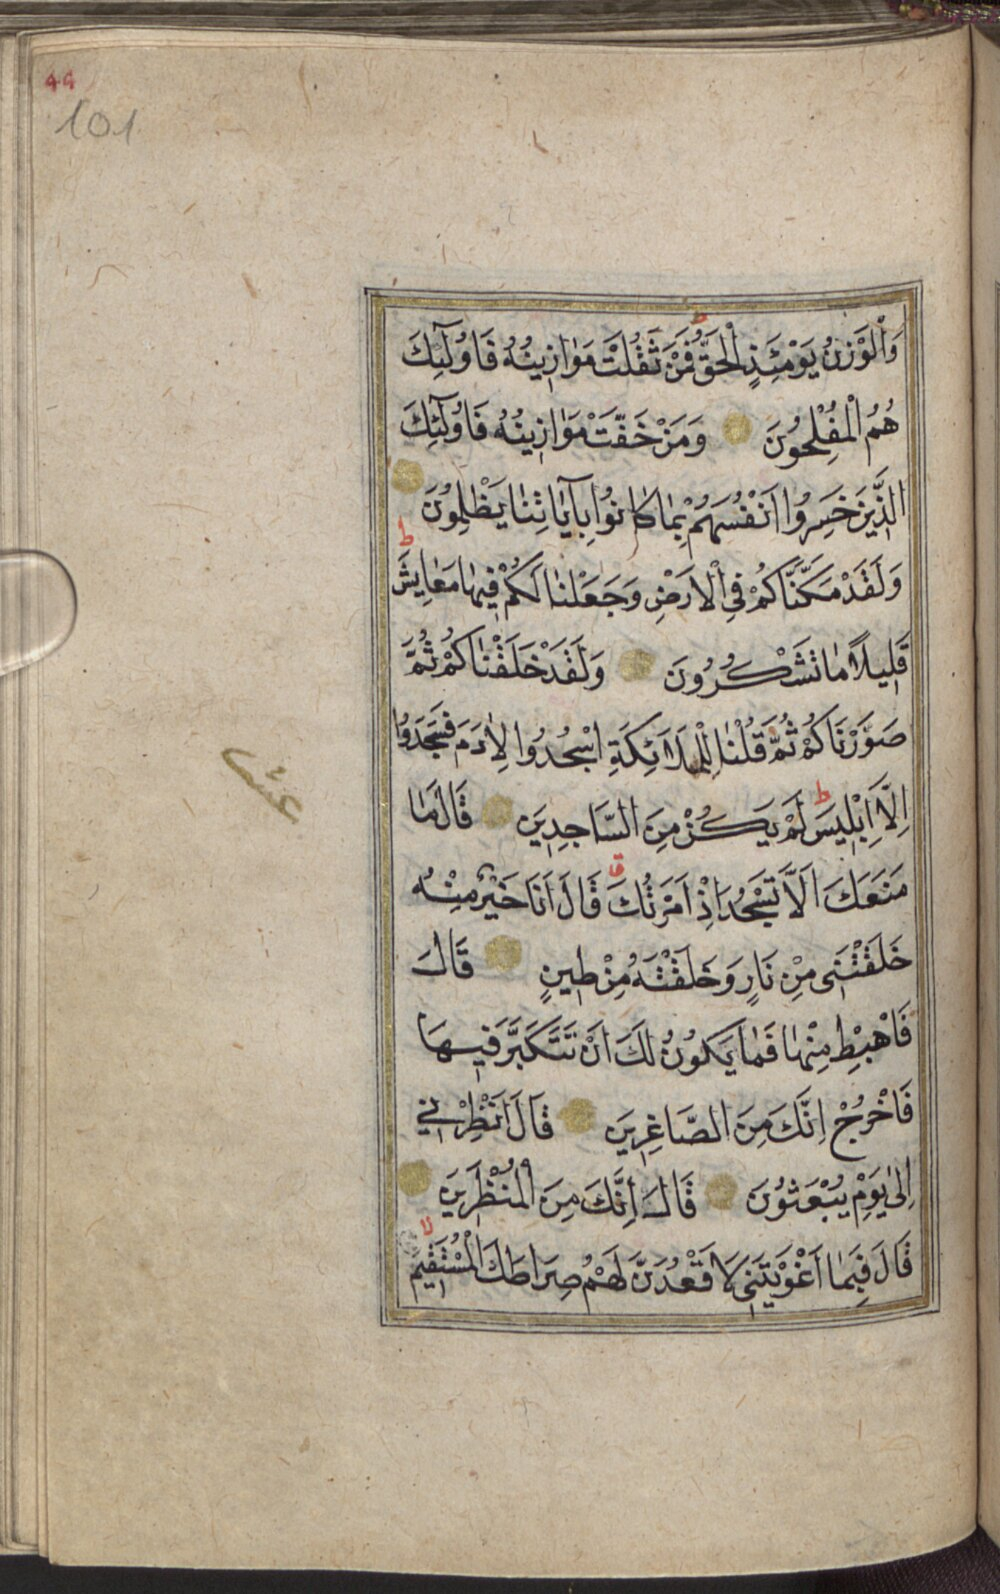 ٩٩
101
وَالْوَزْنُ يَوْمَئِذٍ الْحَقُّ فَمَنْ ثَقُلَتْ مَوَازِينُهُ فَاُولٰٓئِكَ
هُمُ الْمُفْلِحُونَ وَمَنْ خَفَّتْ مَوَازِينُهُ فَاُولٰٓئِكَ
الَّذِينَ خَسِرُوا اَنْفُسَهُمْ بِمَا كَانُوا بِآيَاتِنَا يَظْلِمُونَ
ط
وَلَقَدْ مَكَّنَّاكُمْ فِي الْاَرْضِ وَجَعَلْنَا لَكُمْ فِيهَا مَعَايِشَ
قَلِيلًا مَا تَشْكُرُونَ وَلَقَدْ خَلَقْنَاكُمْ ثُمَّ
صَوَّرْنَاكُمْ ثُمَّ قُلْنَا لِلْمَلَائِكَةِ اسْجُدُوا لِاٰدَمَ فَسَجَدُوا
اِلَّا اِبْلِيسَ ط لَمْ يَكُنْ مِنَ السَّاجِدِينَ قَالَ مَا
عشر
مَنَعَكَ اَلَّا تَسْجُدَ اِذْ اَمَرْتُكَ قَالَ اَنَا خَيْرٌ مِنْهُ
خَلَقْتَنِي مِنْ نَارٍ وَخَلَقْتَهُ مِنْ طِينٍ قَالَ
فَاهْبِطْ مِنْهَا فَمَا يَكُونُ لَكَ اَنْ تَتَكَبَّرَ فِيهَا
فَاخْرُجْ اِنَّكَ مِنَ الصَّاغِرِينَ قَالَ اَنْظِرْنِي
اِلٰى يَوْمِ يُبْعَثُونَ قَالَ اِنَّكَ مِنَ الْمُنْظَرِينَ
لا
قَالَ فَبِمَا اَغْوَيْتَنِي لَاَقْعُدَنَّ لَهُمْ صِرَاطَكَ الْمُسْتَقِيمَ